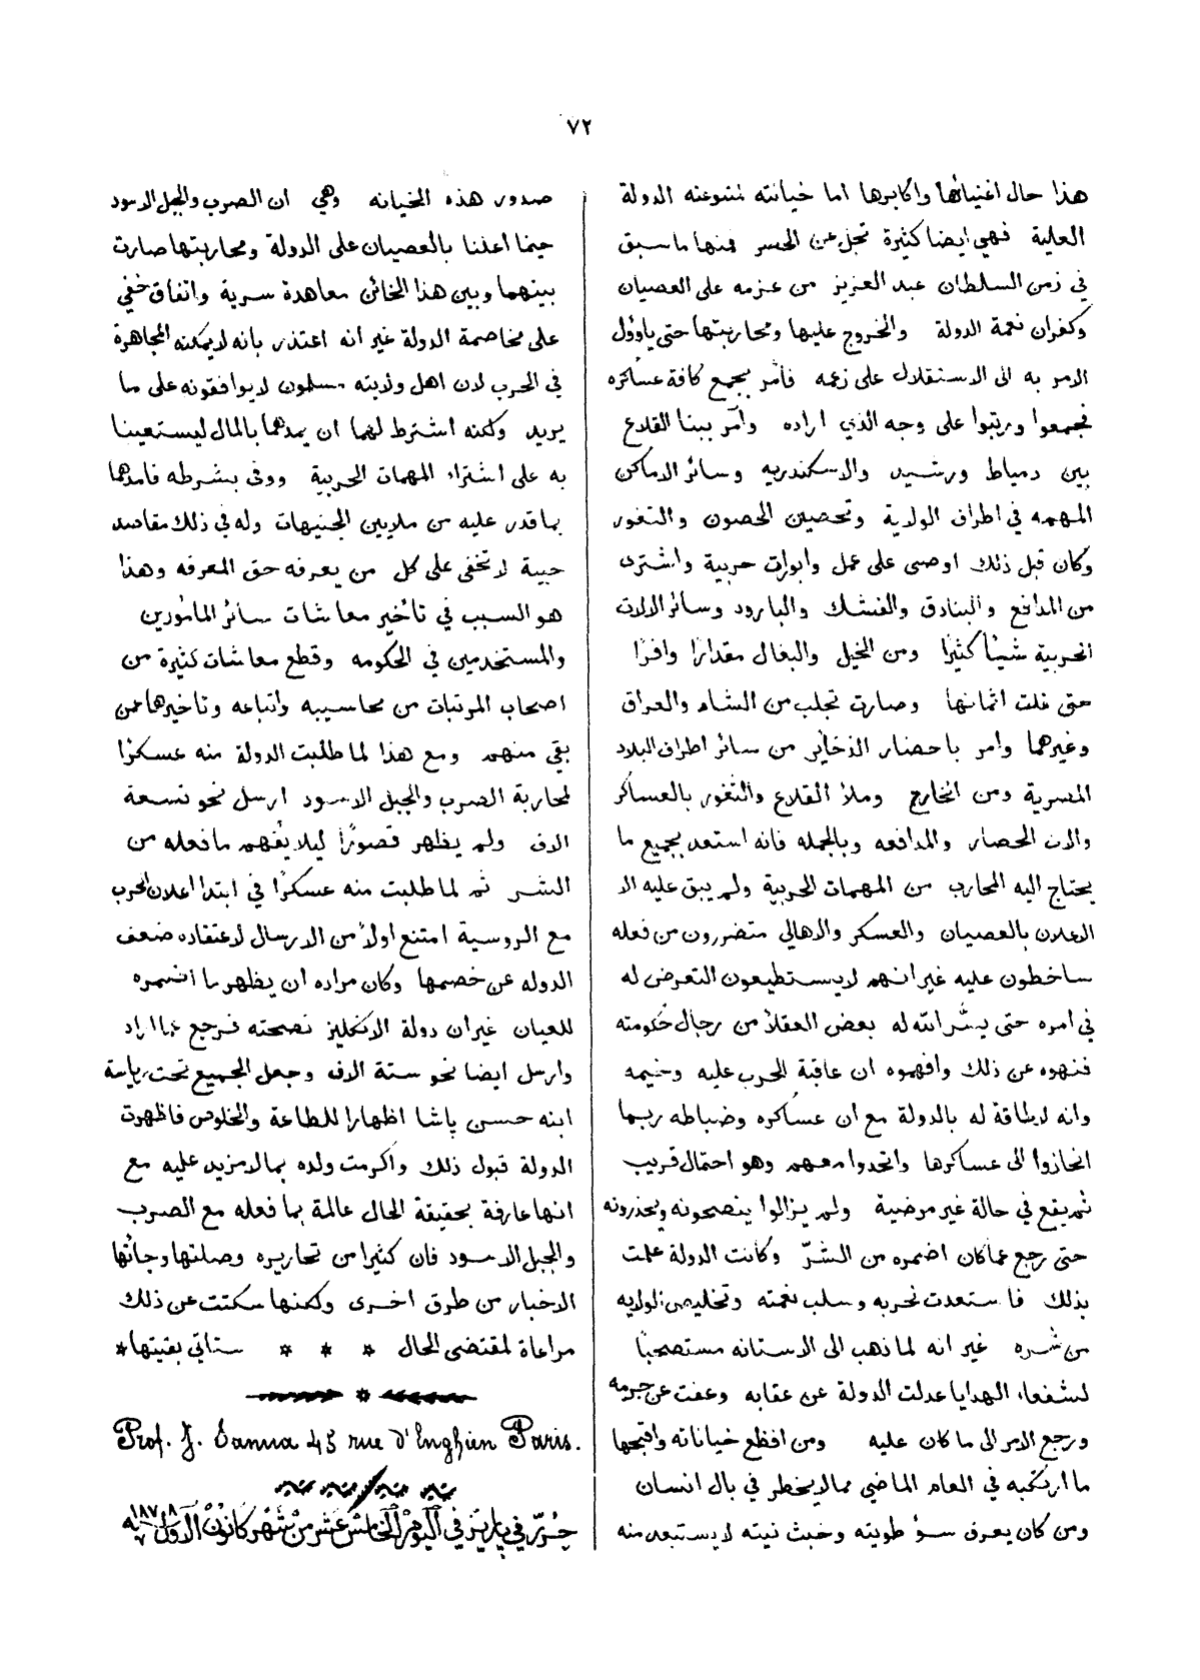 ٧٢
هذا حال اغنيائها واكابرها اما خيانته لمتبوعته الدولة
العلية فهي ايضا كثيرة تجل عن الحصر فمنها ما سبق
في زمن السلطان عبد العزيز من عزمه على العصيان
وكفران نعمة الدولة والخروج عليها ومحاربتها حتى ياؤول
الامر به الى الاستقلال على زعمه فأمر بجمع كافة عساكره
فجمعوا ورتبوا على وجه الذي اراده وآمر ببنا القلاع
بين دمياط ورشيد والاسكندريه وسائر الاماكن
المهمه في اطراف الولاية وتحصين الحصون والثغور
وكان قبل ذلك اوصى على عمل وابورات حربية واشترى
من المدافع والبنادق والفشك والبارود وسائر الالات
الحربية شيئا كثيرًا ومن الخيل والبغال مقدارًا وافرًا
حتى غلت اثمانها وصارت تجلب من الشام والعراق
وغيرهما وامر باحضار الذخائر من سائر اطراف البلاد
المصرية ومن الخارج وملأ القلاع والثغور بالعساكر
والات الحصار والمدافعه وبالجمله فانه استعد بجميع ما
يحتاج اليه المحارب من المهمات الحربية ولم يبق عليه الا
الاعلان بالعصيان والعسكر والاهالي متضررون من فعله
ساخطون عليه غير انهم لا يستطيعون التعرض له
في امره حتى يسّر الله له بعض العقلاء من رجال حكومته
فنهوه عن ذلك وافهموه ان عاقبة الحرب عليه وخيمه
وانه لا طاقة له بالدولة مع ان عساكره وضباطه ربما
انحازوا الى عساكرها واتحدوا معهم وهو احتمال قريب
ثم يقع في حالة غير مرضية ولم يزالوا ينصحونه ويحذرونه
حتى رجع عما كان اضمره من الشرّ وكانت الدولة علمت
بذلك فاستعدت لحربه وسلب نعمته وتخليص الولايه
من شره غير انه لما ذهب الى الاستانه مستصحبًا
لشفعاء الهدايا عدلت الدولة عن عقابه وعفت عن جرمه
ورجع الامر الى ما كان عليه ومن افظع خياناته واقبحها
ما ارتكبه في العام الماضي مما لا يخطر في بال انسان
ومن كان يعرف سؤ طويته وخبث نيته لا يستبعد منه
صدور هذه الخيانه وهي ان الصرب والجبل الاسود
حينما اعلنا بالعصيان على الدولة ومحاربتها صارت
بينهما وبين هذا الخائن معاهدة سرية واتفاق خفي
على مخاصمة الدولة غير انه اعتذر بانه لا يمكنه المجاهرة
في الحرب لان اهل ولايته مسلمون لا يوافقونه على ما
يريد ولكنه اشترط لهما ان يمدهما بالمال ليستعينا
به على اشتراء المهمات الحربية ووفى بشرطه فامدهما
بما قدر عليه من ملايين الجنيهات وله في ذلك مقاصد
خبيثة لا تخفى على كل من يعرفه حق المعرفه وهذا
هو السبب في تأخير معاشات سائر المأمورين
والمستخدمين في الحكومه وقطع معاشات كثيرة من
اصحاب المرتبات من محاسيبه واتباعه وتاخيرها عمن
بقي منهم ومع هذا لما طلبت الدولة منه عسكرًا
لمحاربة الصرب والجبل الاسود ارسل نحو تسعة
الاف ولم يظهر قصورًا ليلا يفهم ما فعله من
الشر ثم لما طلبت منه عسكرًا في ابتدا اعلان الحرب
مع الروسية امتنع اولًا من الارسال لاعتقاده ضعف
الدوله عن خصمها وكان مراده ان يظهر ما اضمره
للعيان غير ان دولة الانكليز نصحته فرجع عما اراد
وارسل ايضا نحو ستة الاف وجعل الجميع تحت رياسة
ابنه حسن پاشا اظهارا للطاعة والخلوص فاظهرت
الدولة قبول ذلك واكرمت ولده بما لا مزيد عليه مع
انها عارفة بحقيقة الحال عالمة بما فعله مع الصرب
والجبل الاسود فان كثيرا من تحاريره وصلتها وجائتها
الاخبار من طرق اخرى ولكنها سكتت عن ذلك
مراعاة لمقتضى الحال * * * ستاتي بقيتها *
Prof. J. Sanua 43 rue d'Enghien Paris.
حُرّر في پاريز في اليوم الخامس عشر من شهر كانون الاول